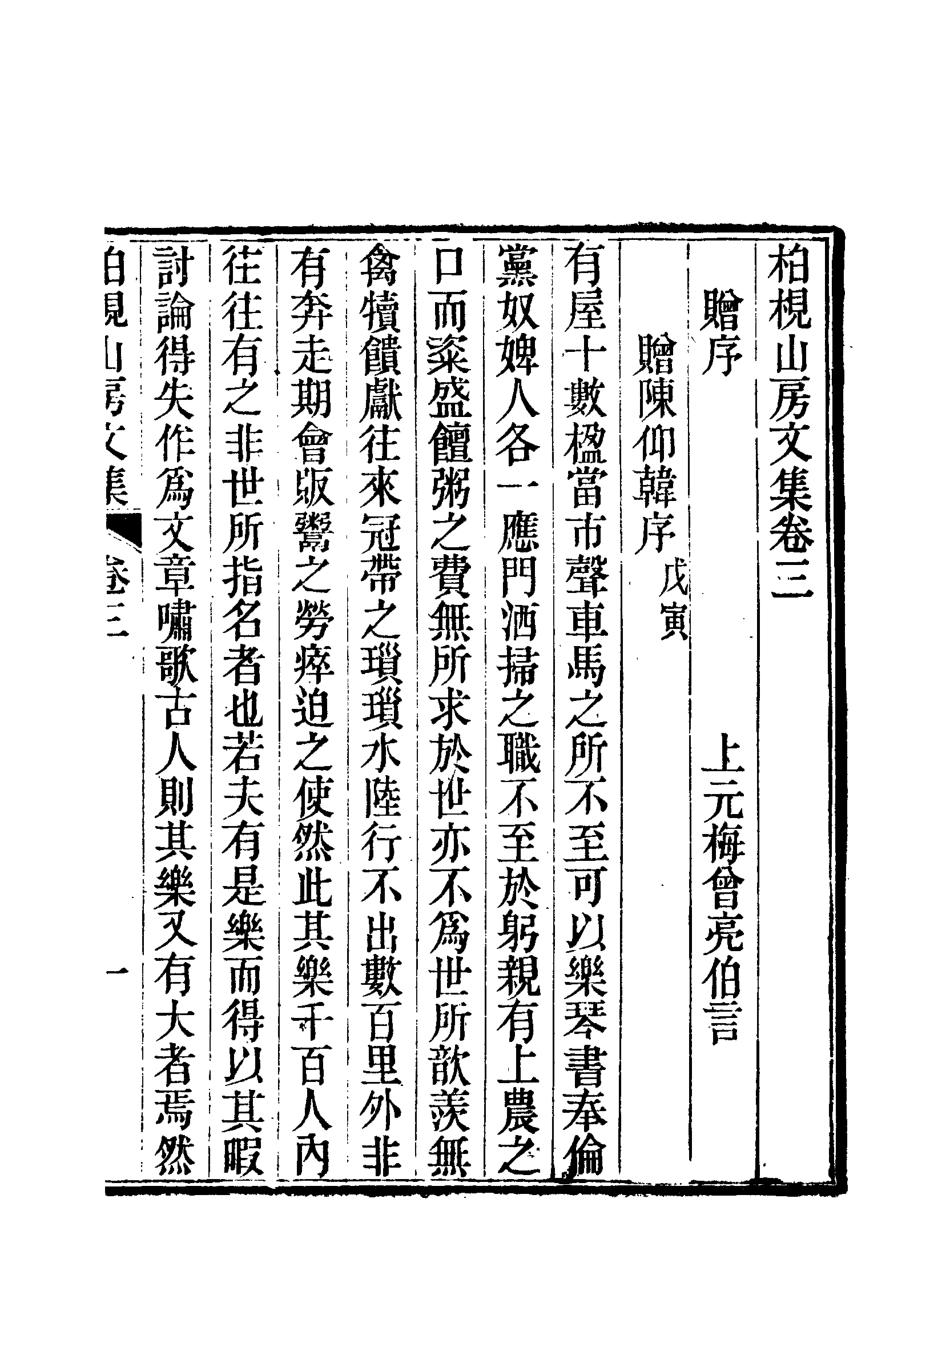 柏梘山房文集卷三
贈序　上元梅曾亮伯言
贈陳仰韓序　戊寅
有屋十數楹當市聲車馬之所不至可以樂琴書奉倫
黨奴婢人各一應門洒掃之職不至於躬親有上農之
口而粢盛饘粥之費無所求於世亦不爲世所歆羨無
禽犢饋獻往來冠帶之瑣瑣水陸行不出數百里外非
有奔走期會販鬻之勞瘁迫之使然此其樂千百人內
往往有之非世所指名者也若夫有是樂而得以其暇
討論得失作爲文章嘯歌古人則其樂又有大者焉然
柏梘山房文集　卷三　一